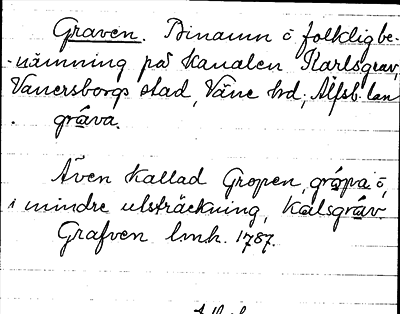 Graven. Binamn o folklig be-
nämning på Kanalen Karlsgrav,
Vänersborgs stad, Väne hd, Älfsb. län
gråva.
Även kallad Gropen, gråpa o,
i mindre utsträckning, Kalsgråv.
Grafven lmh. 1787.